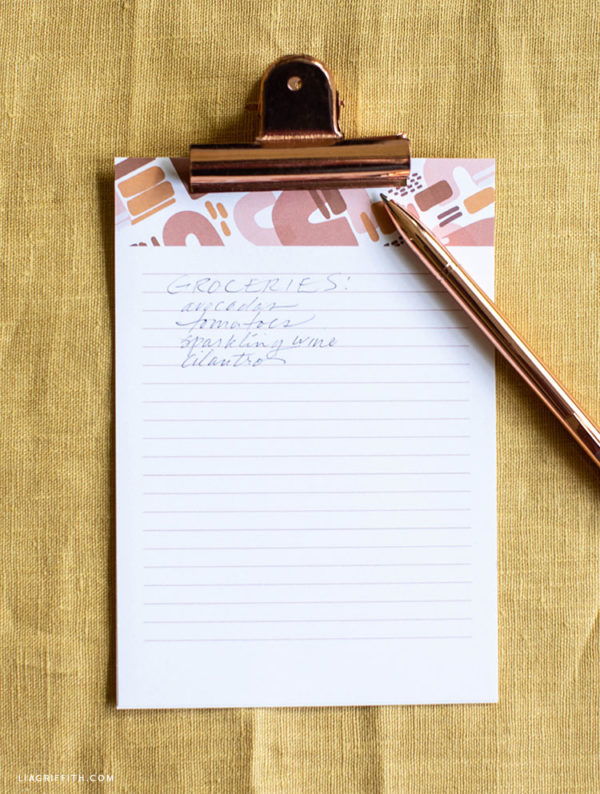 GROCERIES:
avocados
tomatoes
sparkling wine
cilantro
LIAGRIFFITH.COM